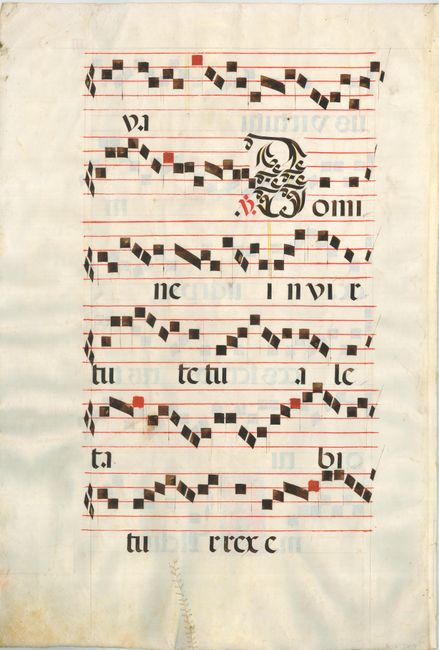 va
℣. Domi
ne in vir
tu te tu a le
ta bi
tu r rex e